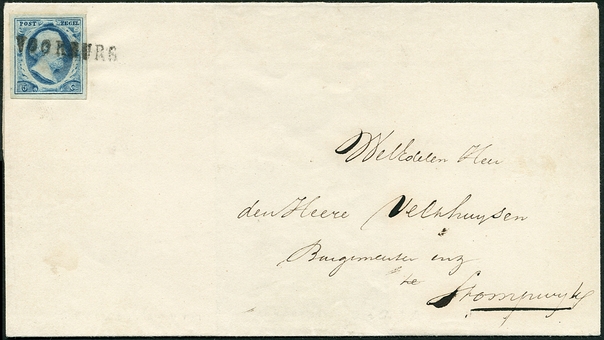 POST ZEGEL
VOORBURG
5 C
Weledelen Heer
den Heere Velthuysen
Burgemeester enz
te
Stompwyk